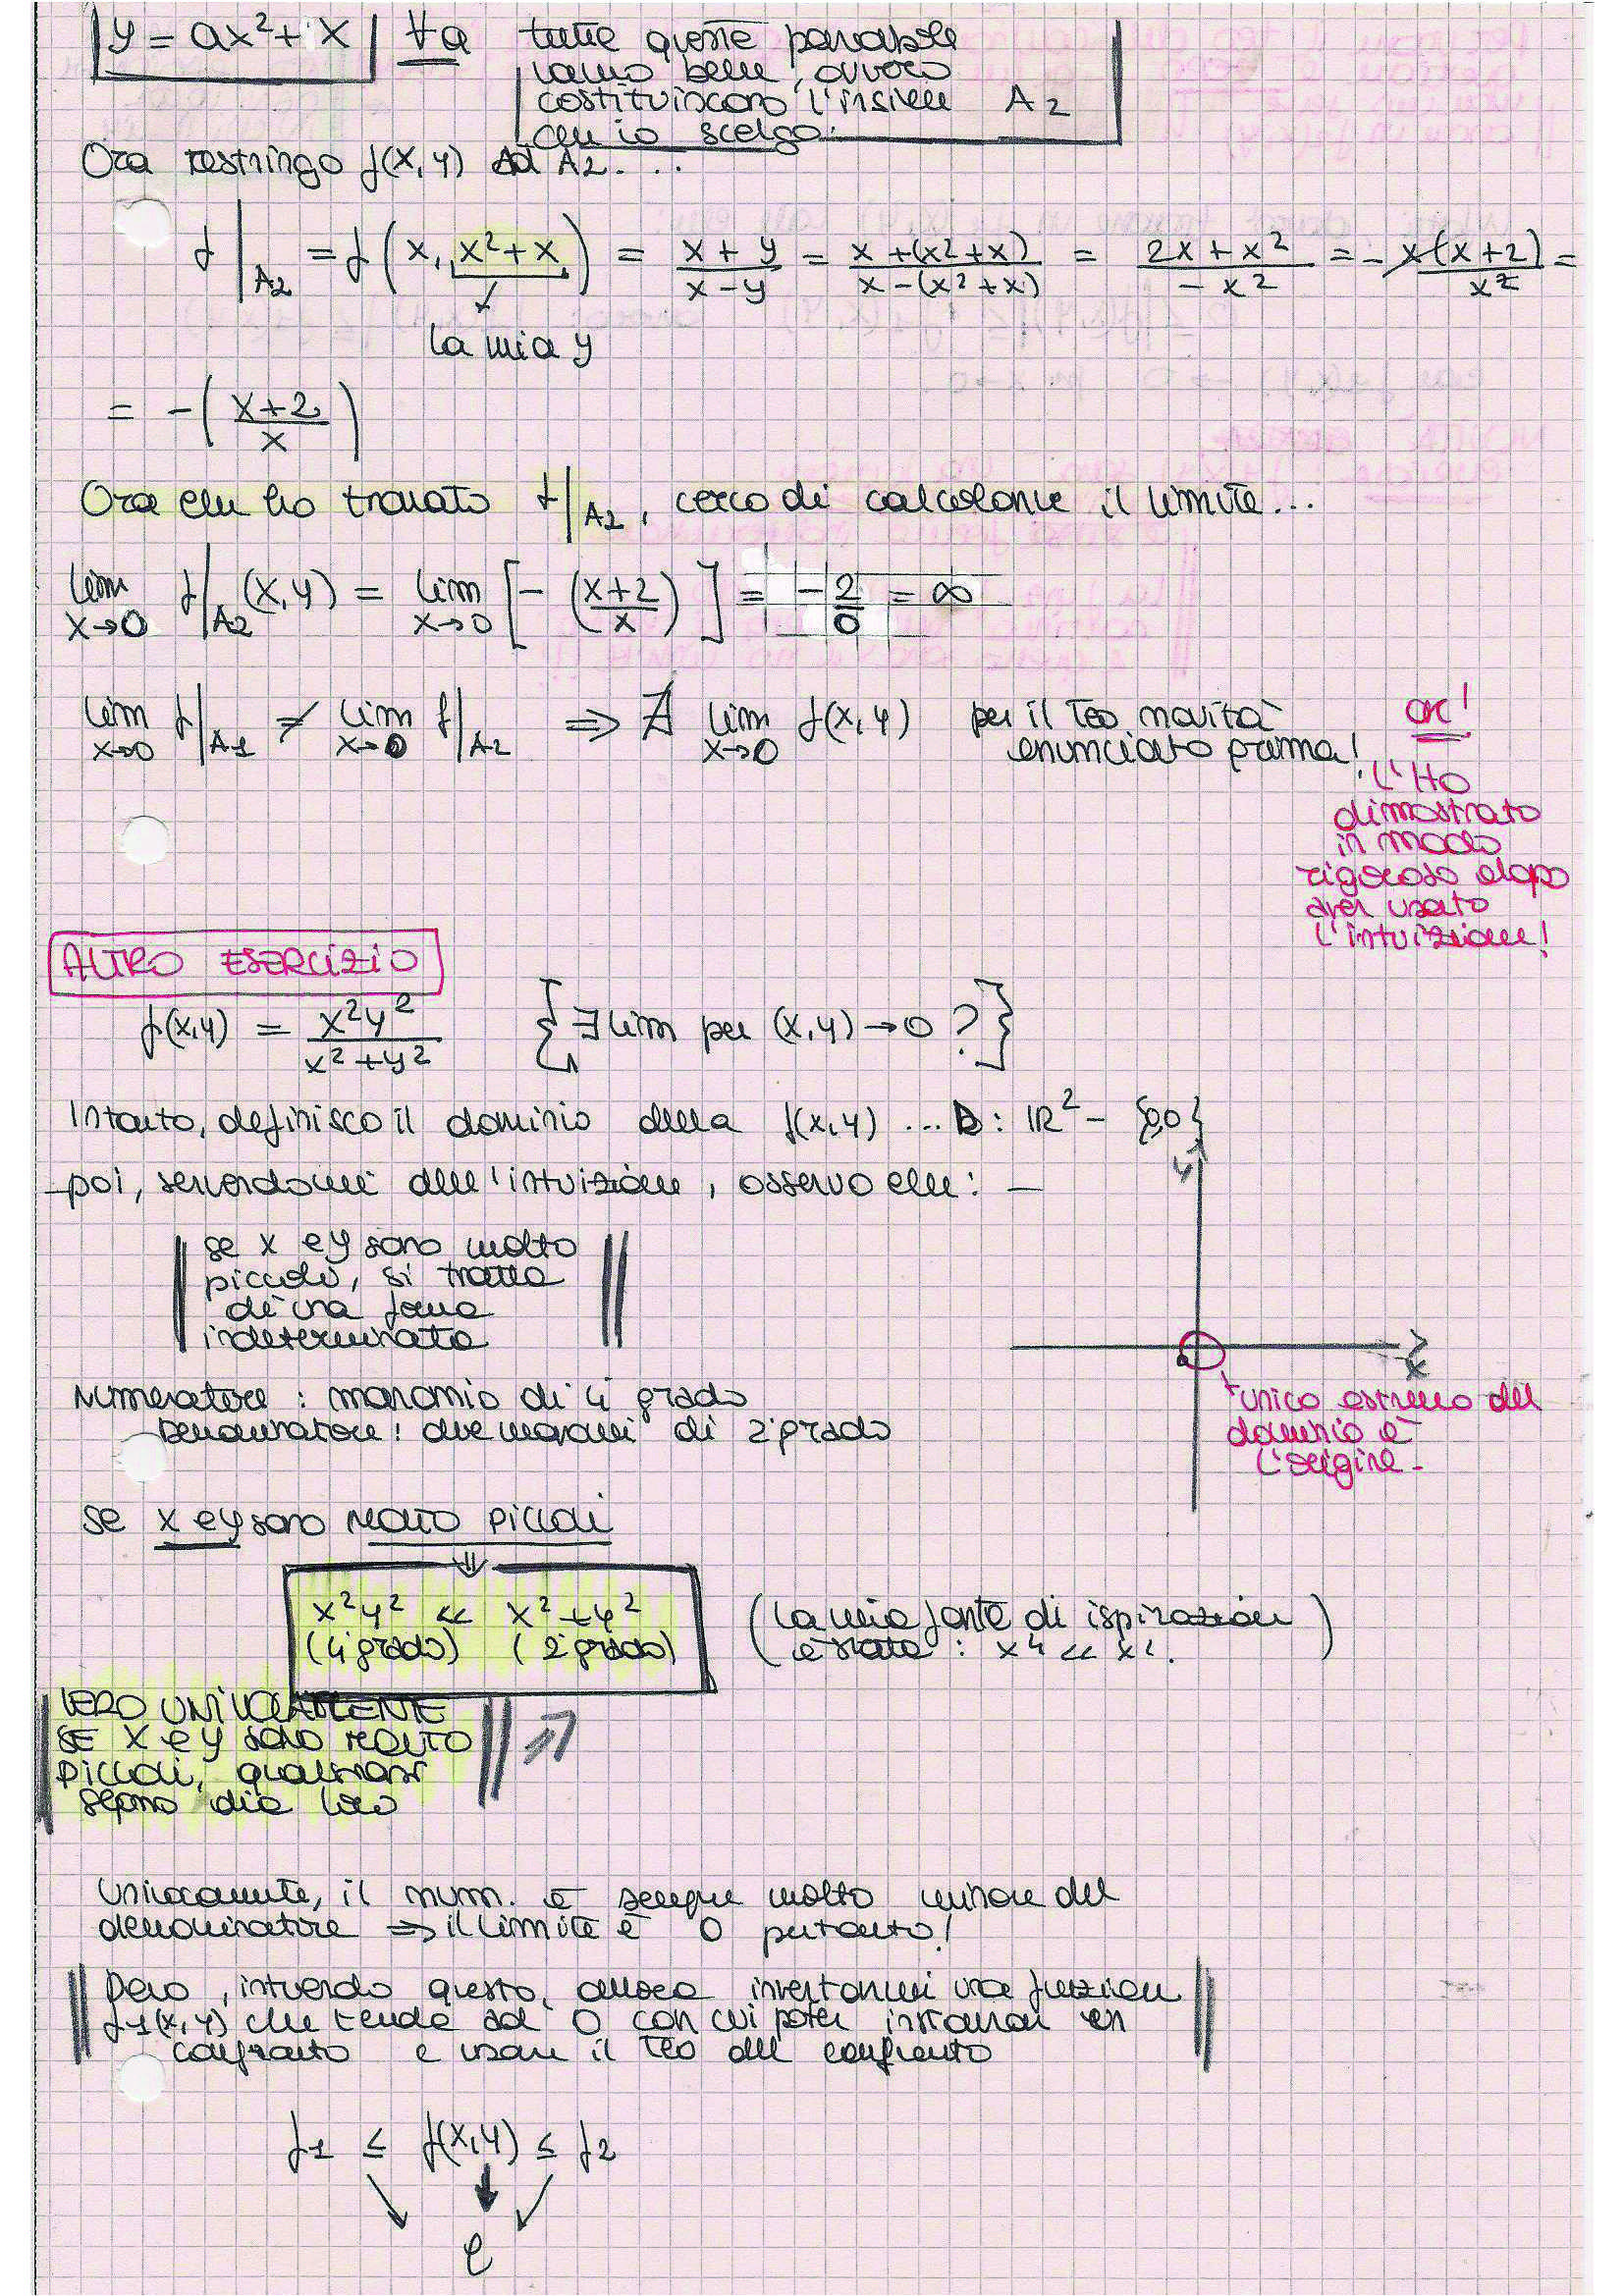 y = ax² + x ∀a tutte queste parabole
vanno bene, ovvero
costituiscono l'insieme A2
che io scelgo.
Ora restringo f(x,y) ad A2...
f|A2 = f(x, x²+x) = x+y/x-y = x+(x²+x)/x-(x²+x) = 2x+x²/-x² = - x(x+2)/x² =
la mia y
= -(x+2/x)
Ora che ho trovato f|A2, cerco di calcolarne il limite...
lim x→0 f|A2 (x,y) = lim x→0 [-(x+2/x)] = -2/0 = ∞
lim x→0 f|A1 ≠ lim x→0 f|A2 ⇒ ∄ lim x→0 f(x,y) per il Teo novità
enunciato prima!
OK!
L'HO
dimostrato
in modo
rigoroso dopo
aver usato
l'intuizione!
ALTRO ESERCIZIO
f(x,y) = x²y²/x²+y² {∃ lim per (x,y)→0 ?}
Intanto, definisco il dominio della f(x,y) ... D: ℝ² - {0,0}
poi, servendomi dell'intuizione, osservo che: —
y
se x e y sono molto
piccoli, si tratta
di una forma
indeterminata
x
Numeratore : monomio di 4 grado
Denominatore: due monomi di 2 grado
unico estremo del
dominio è
l'origine-
se x e y sono MOLTO PICCOLI
⇓
x²y² << x²+y²
(4 grado) (2 grado)
(la mia fonte di ispirazione
è stata : x⁴ << x².)
VERO UNIVOCAMENTE
SE X e y sono MOLTO
PICCOLI, qualsiasi
segno dia loro
Univocamente, il num. è sempre molto minore del
denominatore ⇒ il limite è 0 pertanto!
Devo, intuendo questo, allora inventarmi una funzione
f1(x,y) che tende ad 0 con cui poter instaurar un
confronto e usare il Teo del confronto
f1 ≤ f(x,y) ≤ f2
ℓ